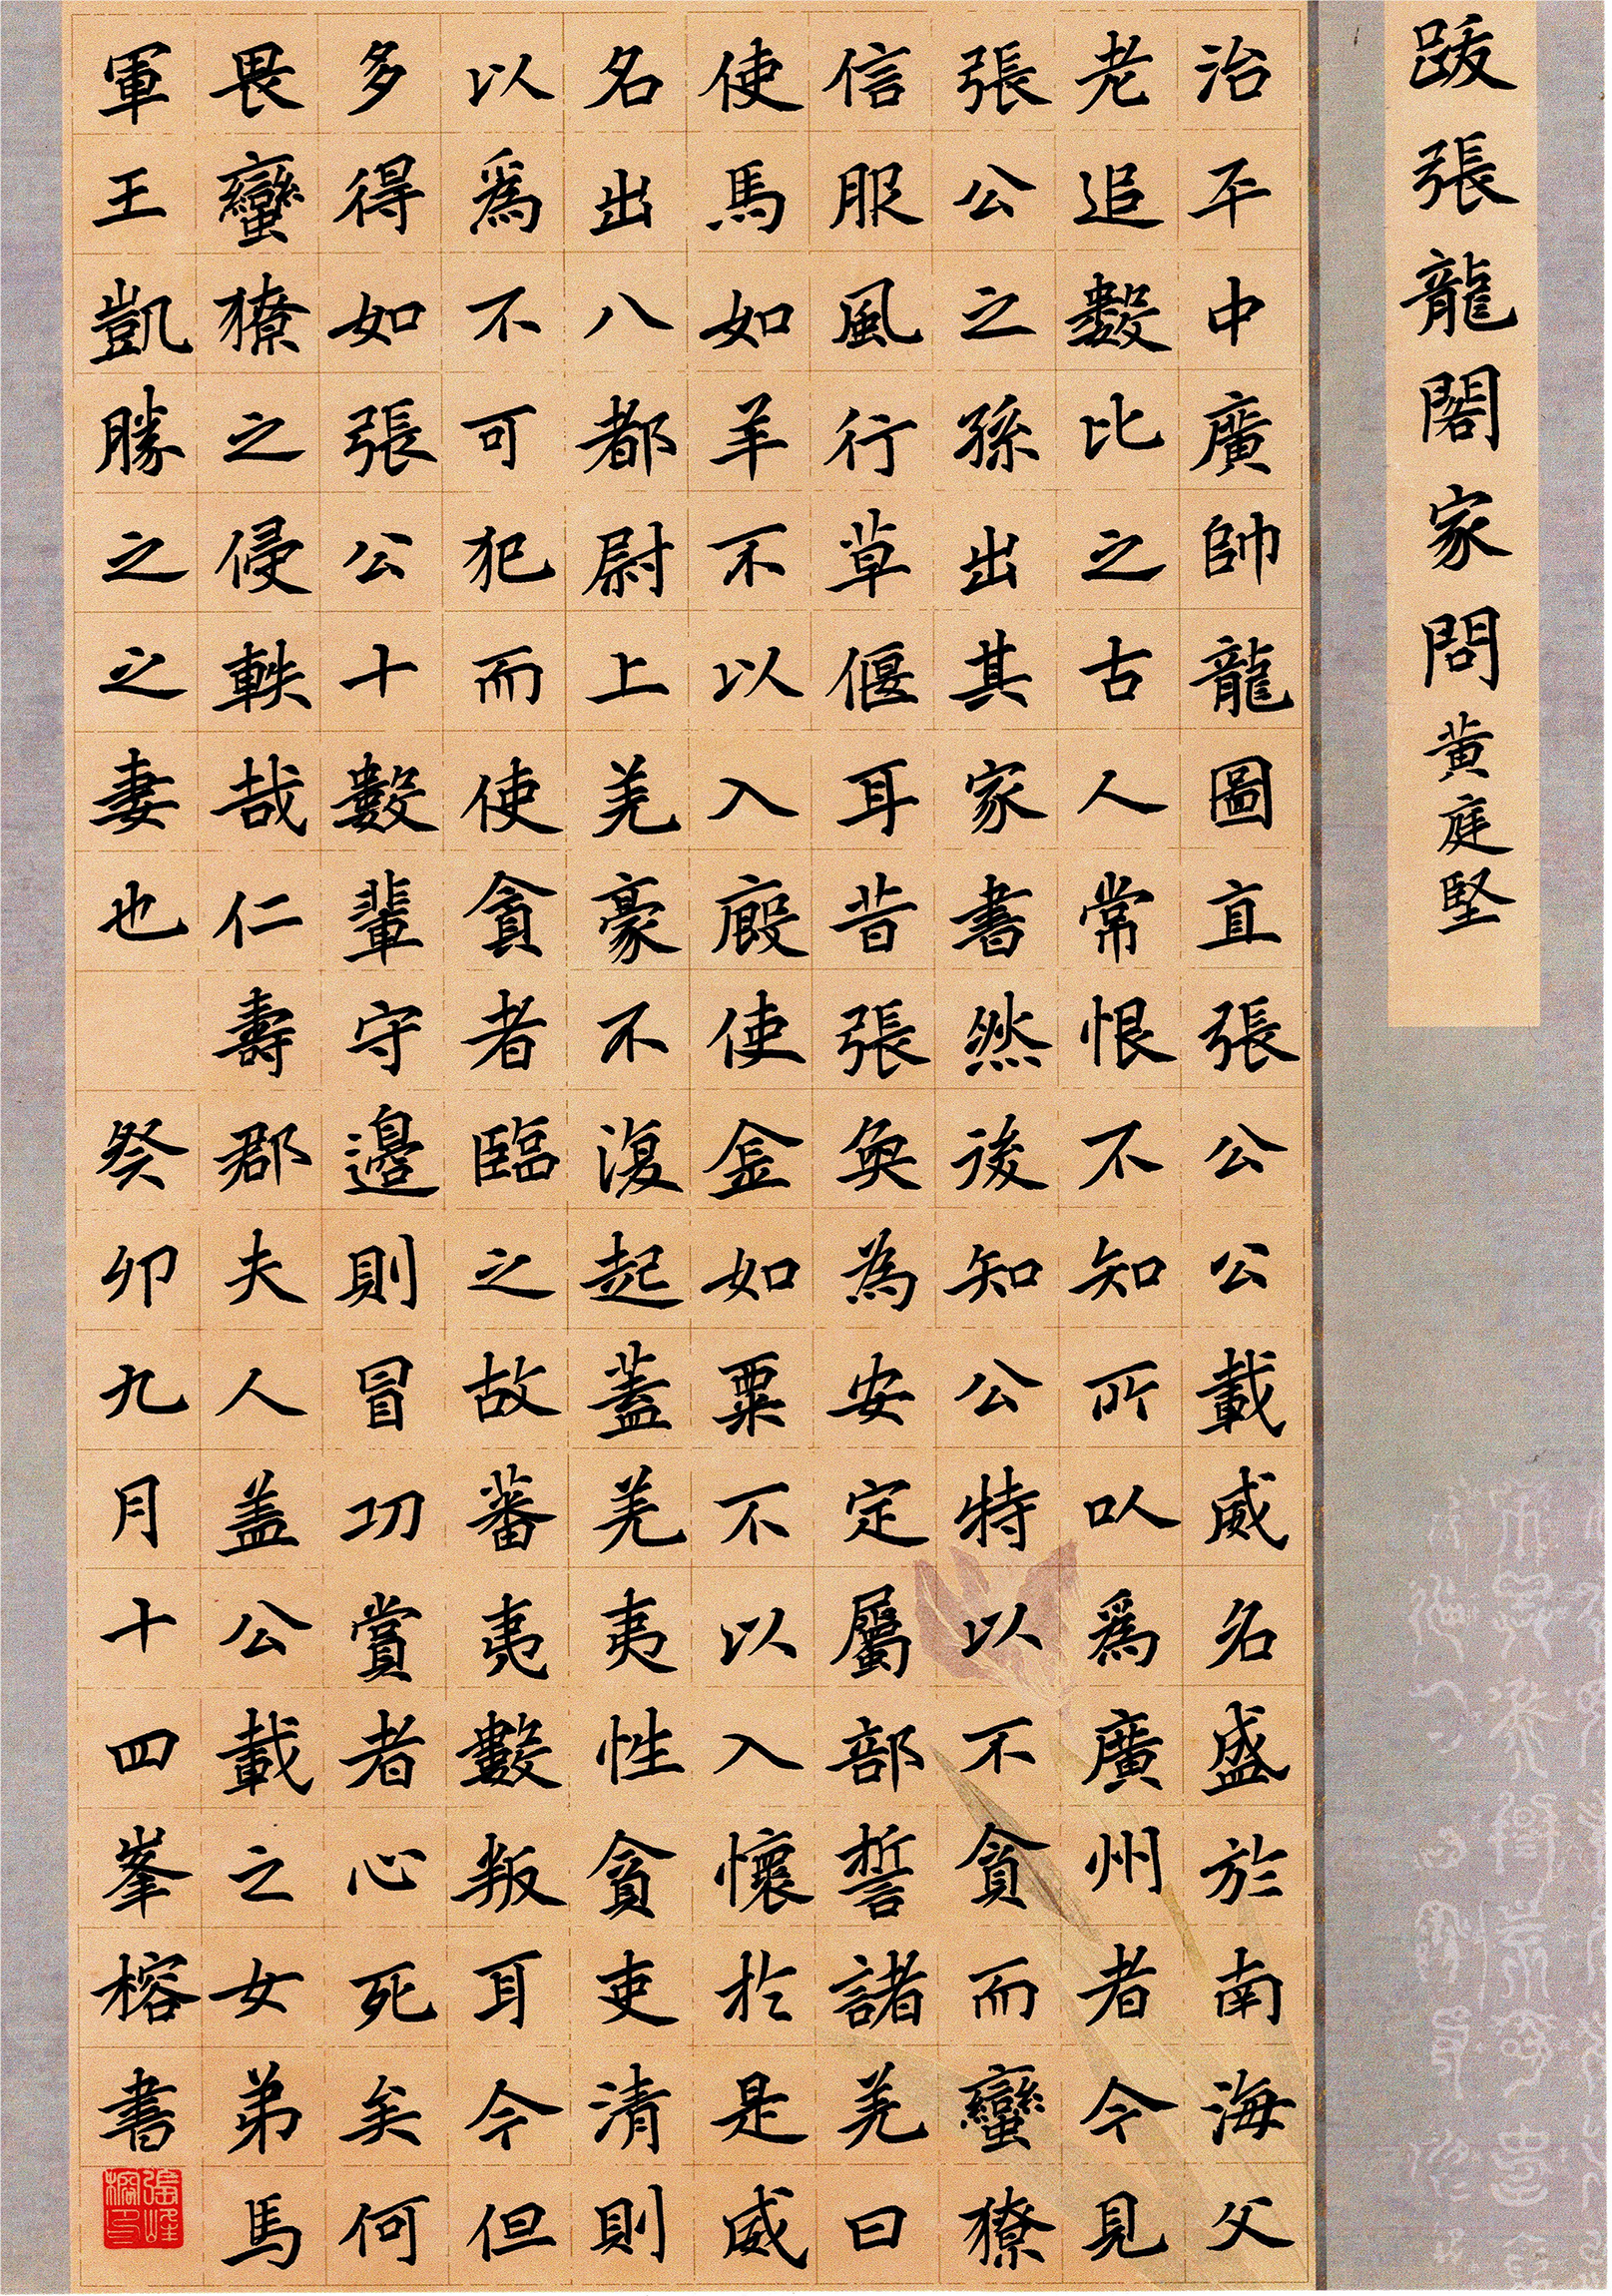 跋張龍閣家問黄庭堅
治平中廣帥龍圖直張公公載威名盛於南海父
老追數比之古人常恨不知所以爲廣州者今見
張公之孫出其家書然後知公特以不貪而蠻獠
信服風行草偃耳昔張奐為安定屬部誓諸羌曰
使馬如羊不以入廄使金如粟不以入懷於是威
名出八都尉上羌豪不復起蓋羌夷性貪吏清則
以爲不可犯而使貪者臨之故蕃夷數叛耳今但
多得如張公十數輩守邊則冒功賞者心死矣何
畏蠻獠之侵軼哉仁壽郡夫人盖公載之女弟馬
軍王凱勝之之妻也 癸卯九月十四峯榕書
張峰榕印